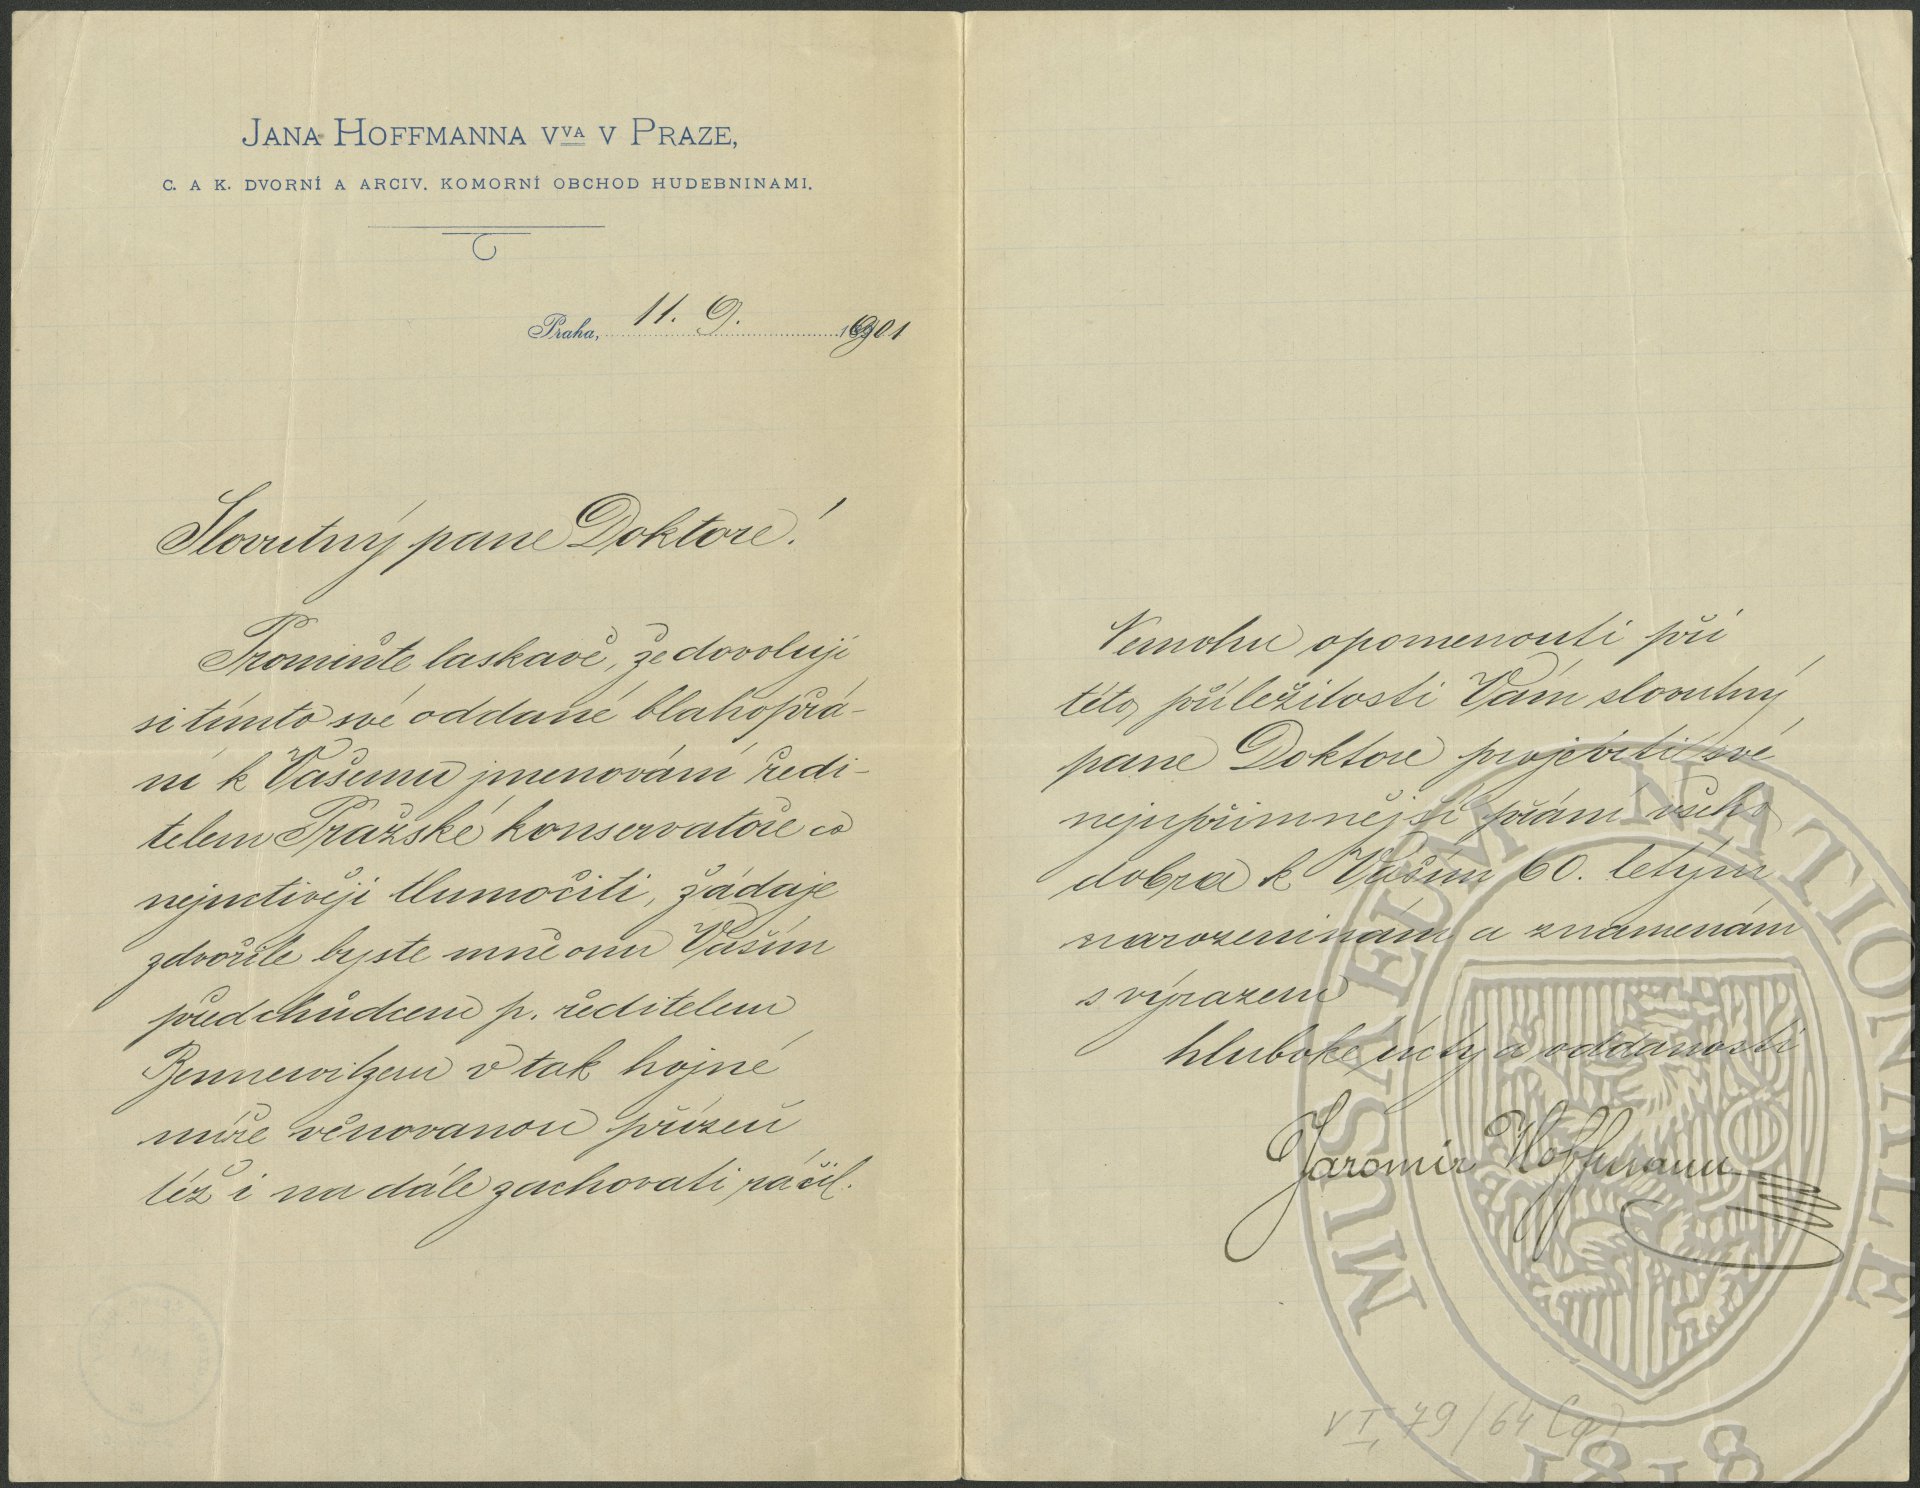 JANA HOFFMANNA VVA V PRAZE,
C. A K. DVORNÍ A ARCIV. KOMORNÍ OBCHOD HUDEBNINAMI.
Praha, 11. 9. 1901
Slovutný pane Doktore!
Promiňte laskavě, že dovoluji
si tímto své oddané blahopřá-
ní k Vašemu jmenování ředi-
telem Pražské konservatoře co
nejuctivěji tlumočiti, žádaje
zdvořile byste mně onu Vaším
předchůdcem p. ředitelem
Bennewitzem v tak hojné
míře věnovanou přízeň
též i na dále zachovati ráčil.
Nemohu opomenouti při
této příležitosti Vám slovutný
pane Doktore projeviti své
nejupřímnější přání všeho
dobra k Vašim 60. letým
narozeninám a znamenám
s výrazem
hluboké úcty a oddanosti
Jaromír Hoffmann
VI, 79/64 (g)
MUSAEUM NATIONALE
1818